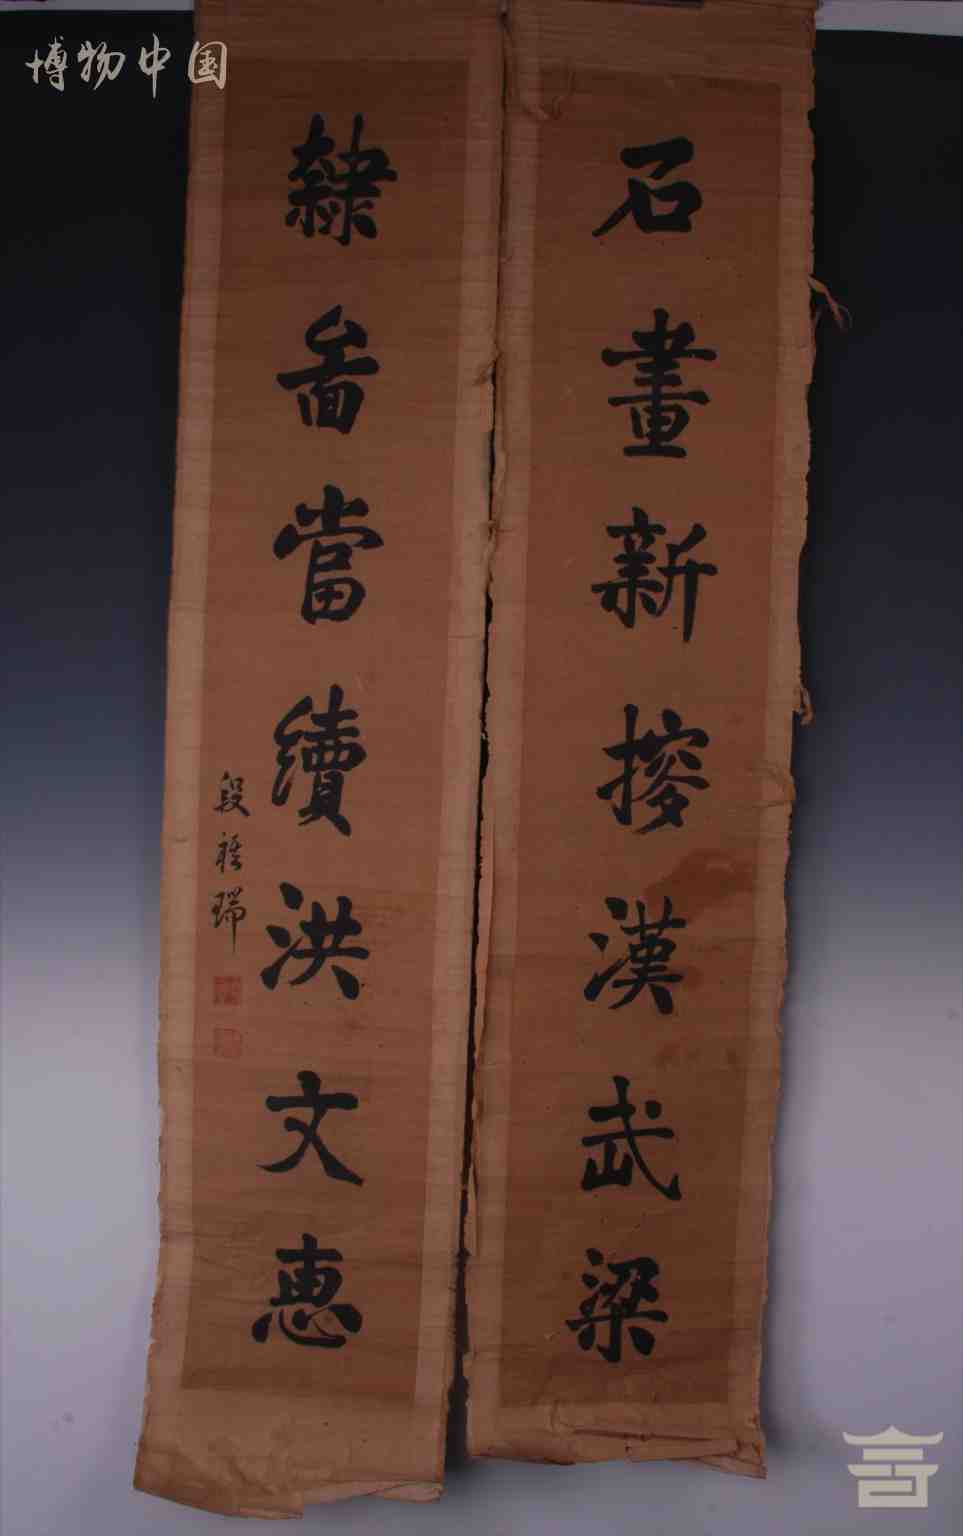 博物中国
石畫新漢武梁
隷啚當續洪文惠
段祺瑞